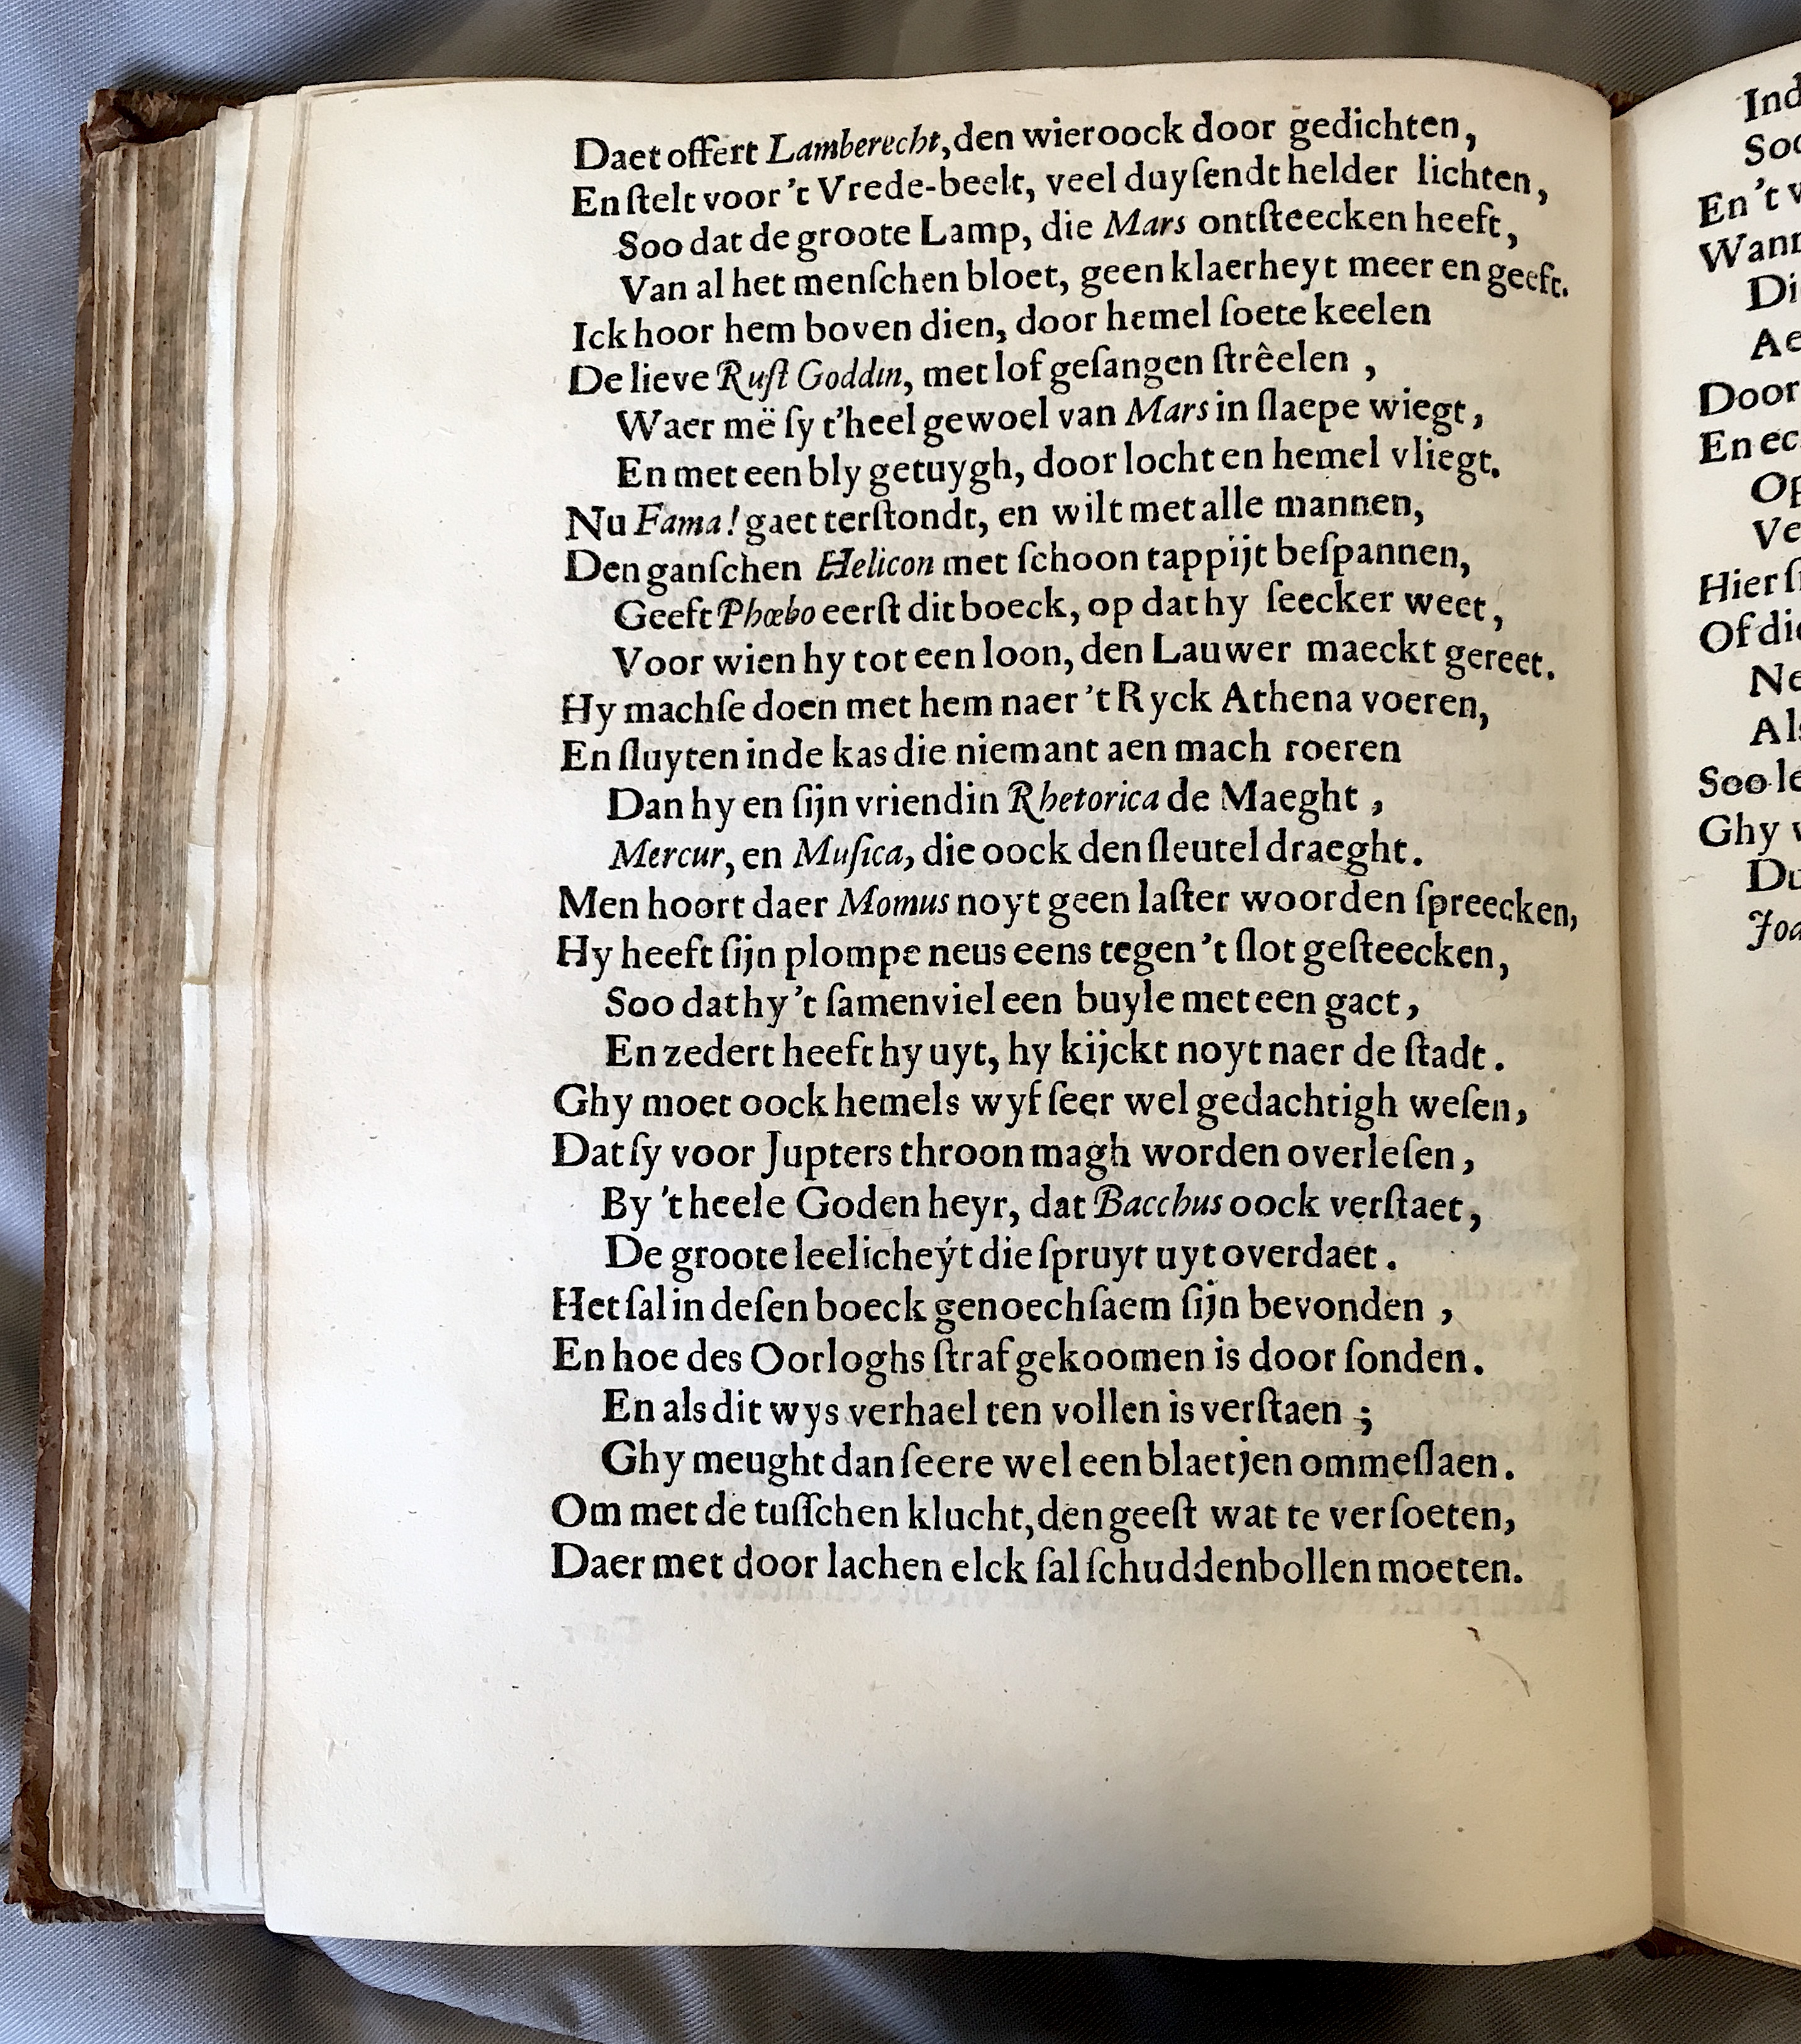 Daet offert Lamberecht, den wieroock door gedichten,
En ſtelt voor 't Vrede-beelt, veel duyſendt helder lichten,
Soo dat de groote Lamp, die Mars ontſteecken heeft,
Van al het menſchen bloet, geen klaerheyt meer en geeft.
Ick hoor hem boven dien, door hemel ſoete keelen
De lieve Ruſt Goddin, met lof geſangen ſtrêelen,
Waer më ſy t'heel gewoel van Mars in ſlaepe wiegt,
En met een bly getuygh, door locht en hemel vliegt.
Nu Fama! gaet terſtondt, en wilt met alle mannen,
Den ganſchen Helicon met ſchoon tappijt beſpannen,
Geeft Phœbo eerſt dit boeck, op dat hy ſeecker weet,
Voor wien hy tot een loon, den Lauwer maeckt gereet.
Hy machſe doen met hem naer 't Ryck Athena voeren,
En ſluyten inde kas die niemant aen mach roeren
Dan hy en ſijn vriendin Rhetorica de Maeght,
Mercur, en Muſica, die oock den ſleutel draeght.
Men hoort daer Momus noyt geen laſter woorden ſpreecken,
Hy heeft ſijn plompe neus eens tegen 't ſlot geſteecken,
Soo dat hy 't ſamen viel een buyle met een gact,
En zedert heeft hy uyt, hy kijckt noyt naer de ſtadt.
Ghy moet oock hemels wyf ſeer wel gedachtigh weſen,
Dat ſy voor Jupters throon magh worden overleſen,
By 't heele Goden heyr, dat Bacchus oock verſtaet,
De groote leelicheyt die ſpruyt uyt overdaet.
Het ſal in deſen boeck genoechſaem ſijn bevonden,
En hoe des Oorloghs ſtraf gekoomen is door ſonden.
En als dit wys verhael ten vollen is verſtaen;
Ghy meught dan ſeere wel een blaetjen ommeſlaen.
Om met de tuſſchen klucht, den geeſt wat te verſoeten,
Daer met door lachen elck ſal ſchuddenbollen moeten.
Ind
Soo
En 't v
Wann
Di
Ae
Door
En ec
Op
Ve
Hier ſ
Of die
Ne
Als
Soo le
Ghy
Du
Joa